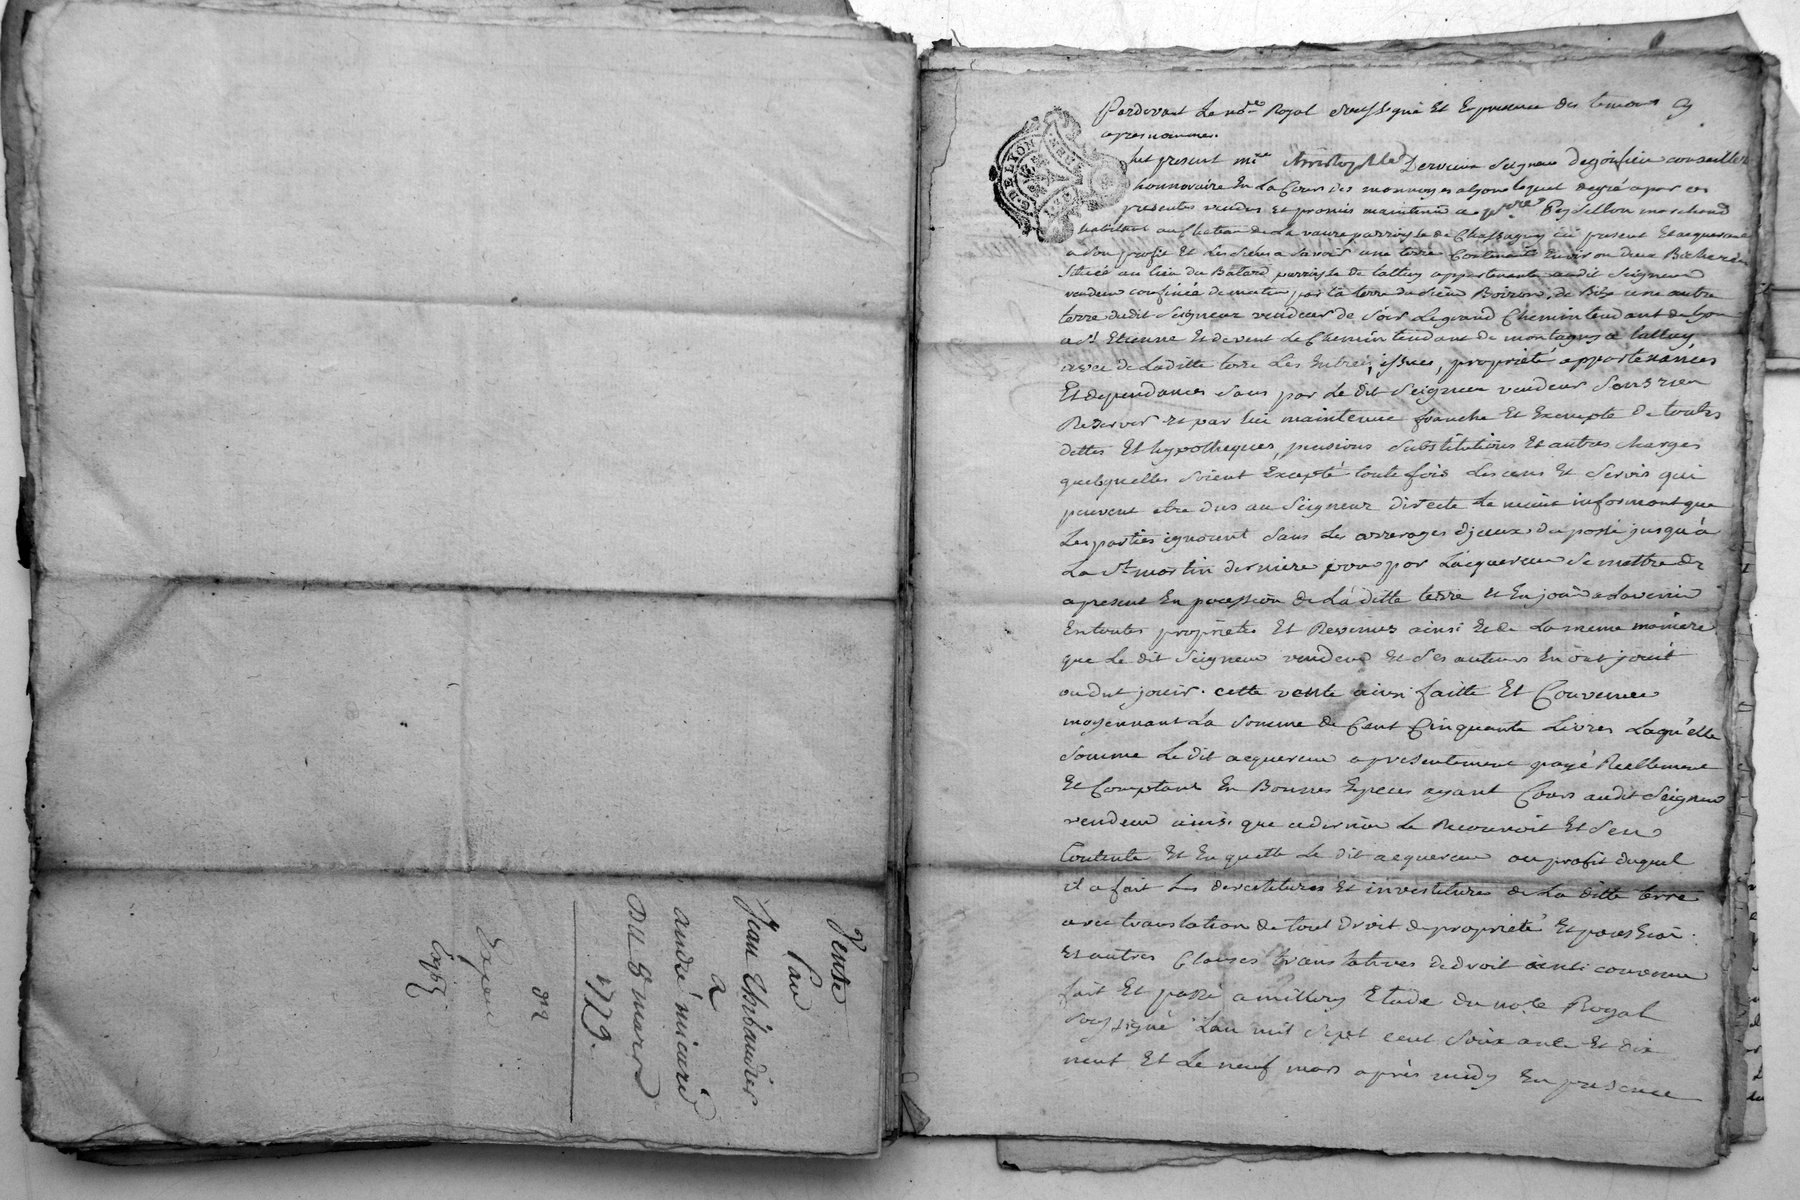 Vente
Par
Jean Thibaudier
a
andré micard
Du 8 mars
1779.
G. DE LYON
Pardevant Le no.re Royal soussigné Et En presence des temoins cy
apres nommes.
fut present m.re Christophle Dervieu Seigneur degoiffieu conseiller
honnoraire En La Cour des monnoyes alyon lequel degré apar ces
presentes vendu Et promis maintenir a Peysellon marchand
habitant au Chateau de La vaure parroisse de Chassagny ici present Et acquerant
a son profit Et Les siens a savoir une terre Contenant Environ deux Bicherées
située au lieu du Batard parroisse de talluy appartenante audit Seigneur
vendeur confinée de matin par la terre du Sieur Boiron, de Bize une autre
terre dudit Seigneur vendeur de soir Le grand Chemin tendant de Lyon
a S.t Etienne Et de vent Le Chemin tendant de montagny a talluy
avec de Laditte terre Les Entrées, issues, proprieté appartenances
Et dependances sans par Le dit Seigneur vendeur sans rien
Reserver Et par lui maintenue franche Et Exempte de toutes
dettes Et hypotheques, pensions substitutions Et autres charges
quelquelles soient Excepté toute fois Les cens Et servis qui
peuvent etre dus au Seigneur directe Le meme informant que
Les parties ignorent sans Les arrerages d'jceux du passé jusqu'à
La S.t martin derniere pour par L'acquereur se mettre de
apresent En pocession de La ditte terre Et En jouir alavenir
En toutes proprietés Et Revenus ainsi Et de La meme maniere
que Le dit Seigneur vendeur Et ses auteurs En ont jouit
ou dut jouir. cette vente ainsi faitte Et Convenue
moyennant La somme de Cent Cinquante Livres Laquelle
somme Le dit acquereur a presentement payé Reellement
Et Comptant En Bonnes Especes ayant Cours audit Seigneur
vendeur ainsi que ce dernier Le Reconnoit Et s'en
Contente Et En quitte Le dit acquereur au profit duquel
il a fait Les devestitures Et investitures de La ditte terre
avec translation de tout droit de proprieté Et possession
Et autres Clauses translatives de droit ainsi convenu
fait Et passé a millery Etude du no.re Royal
soussigné L'an mil sept cent soixante Et dix
neuf Et Le neuf mars après midy En presence